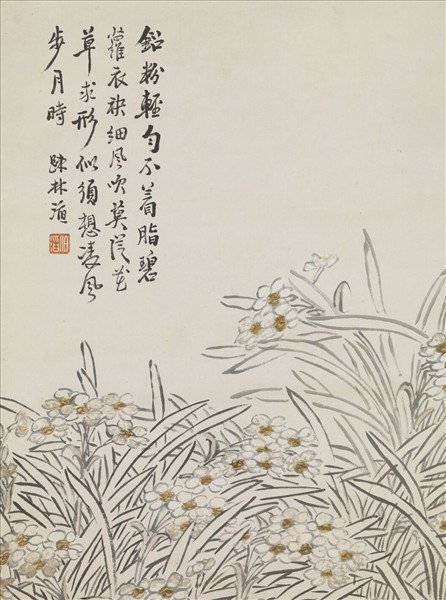 鉛粉輕勻不着脂碧
蘿衣袂細風吹莫從花
草求形似須想凌風
步月時